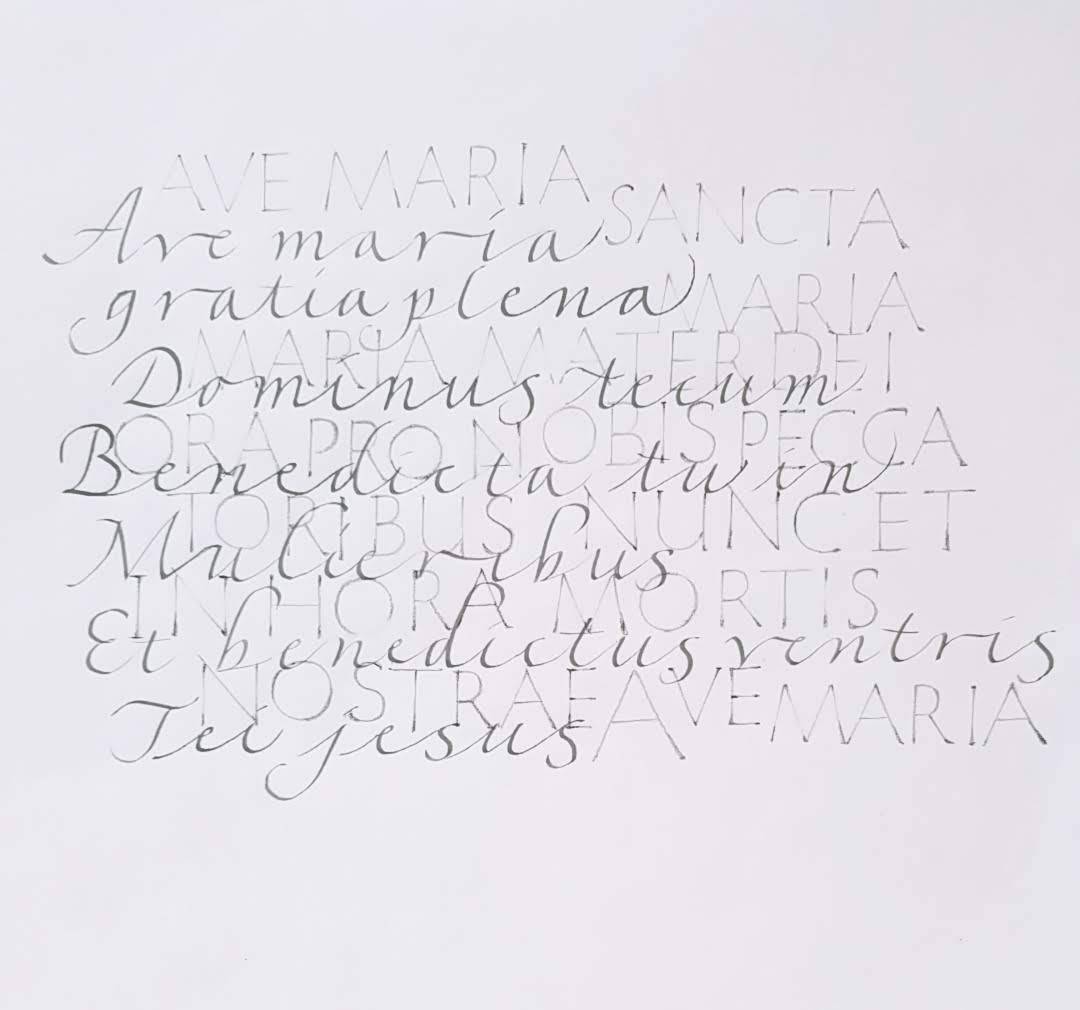 AVE MARIA
SANCTA
Ave maria
gratia plena
MARIA
MARIA MATER DEI
Dominus tecum
ORA PRO NOBIS PECCA
Benedicta tu in
TORIBUS NUNC ET
Mulieribus
IN HORA MORTIS
Et benedictus ventris
NOSTRAE AVE MARIA
Tei jesus